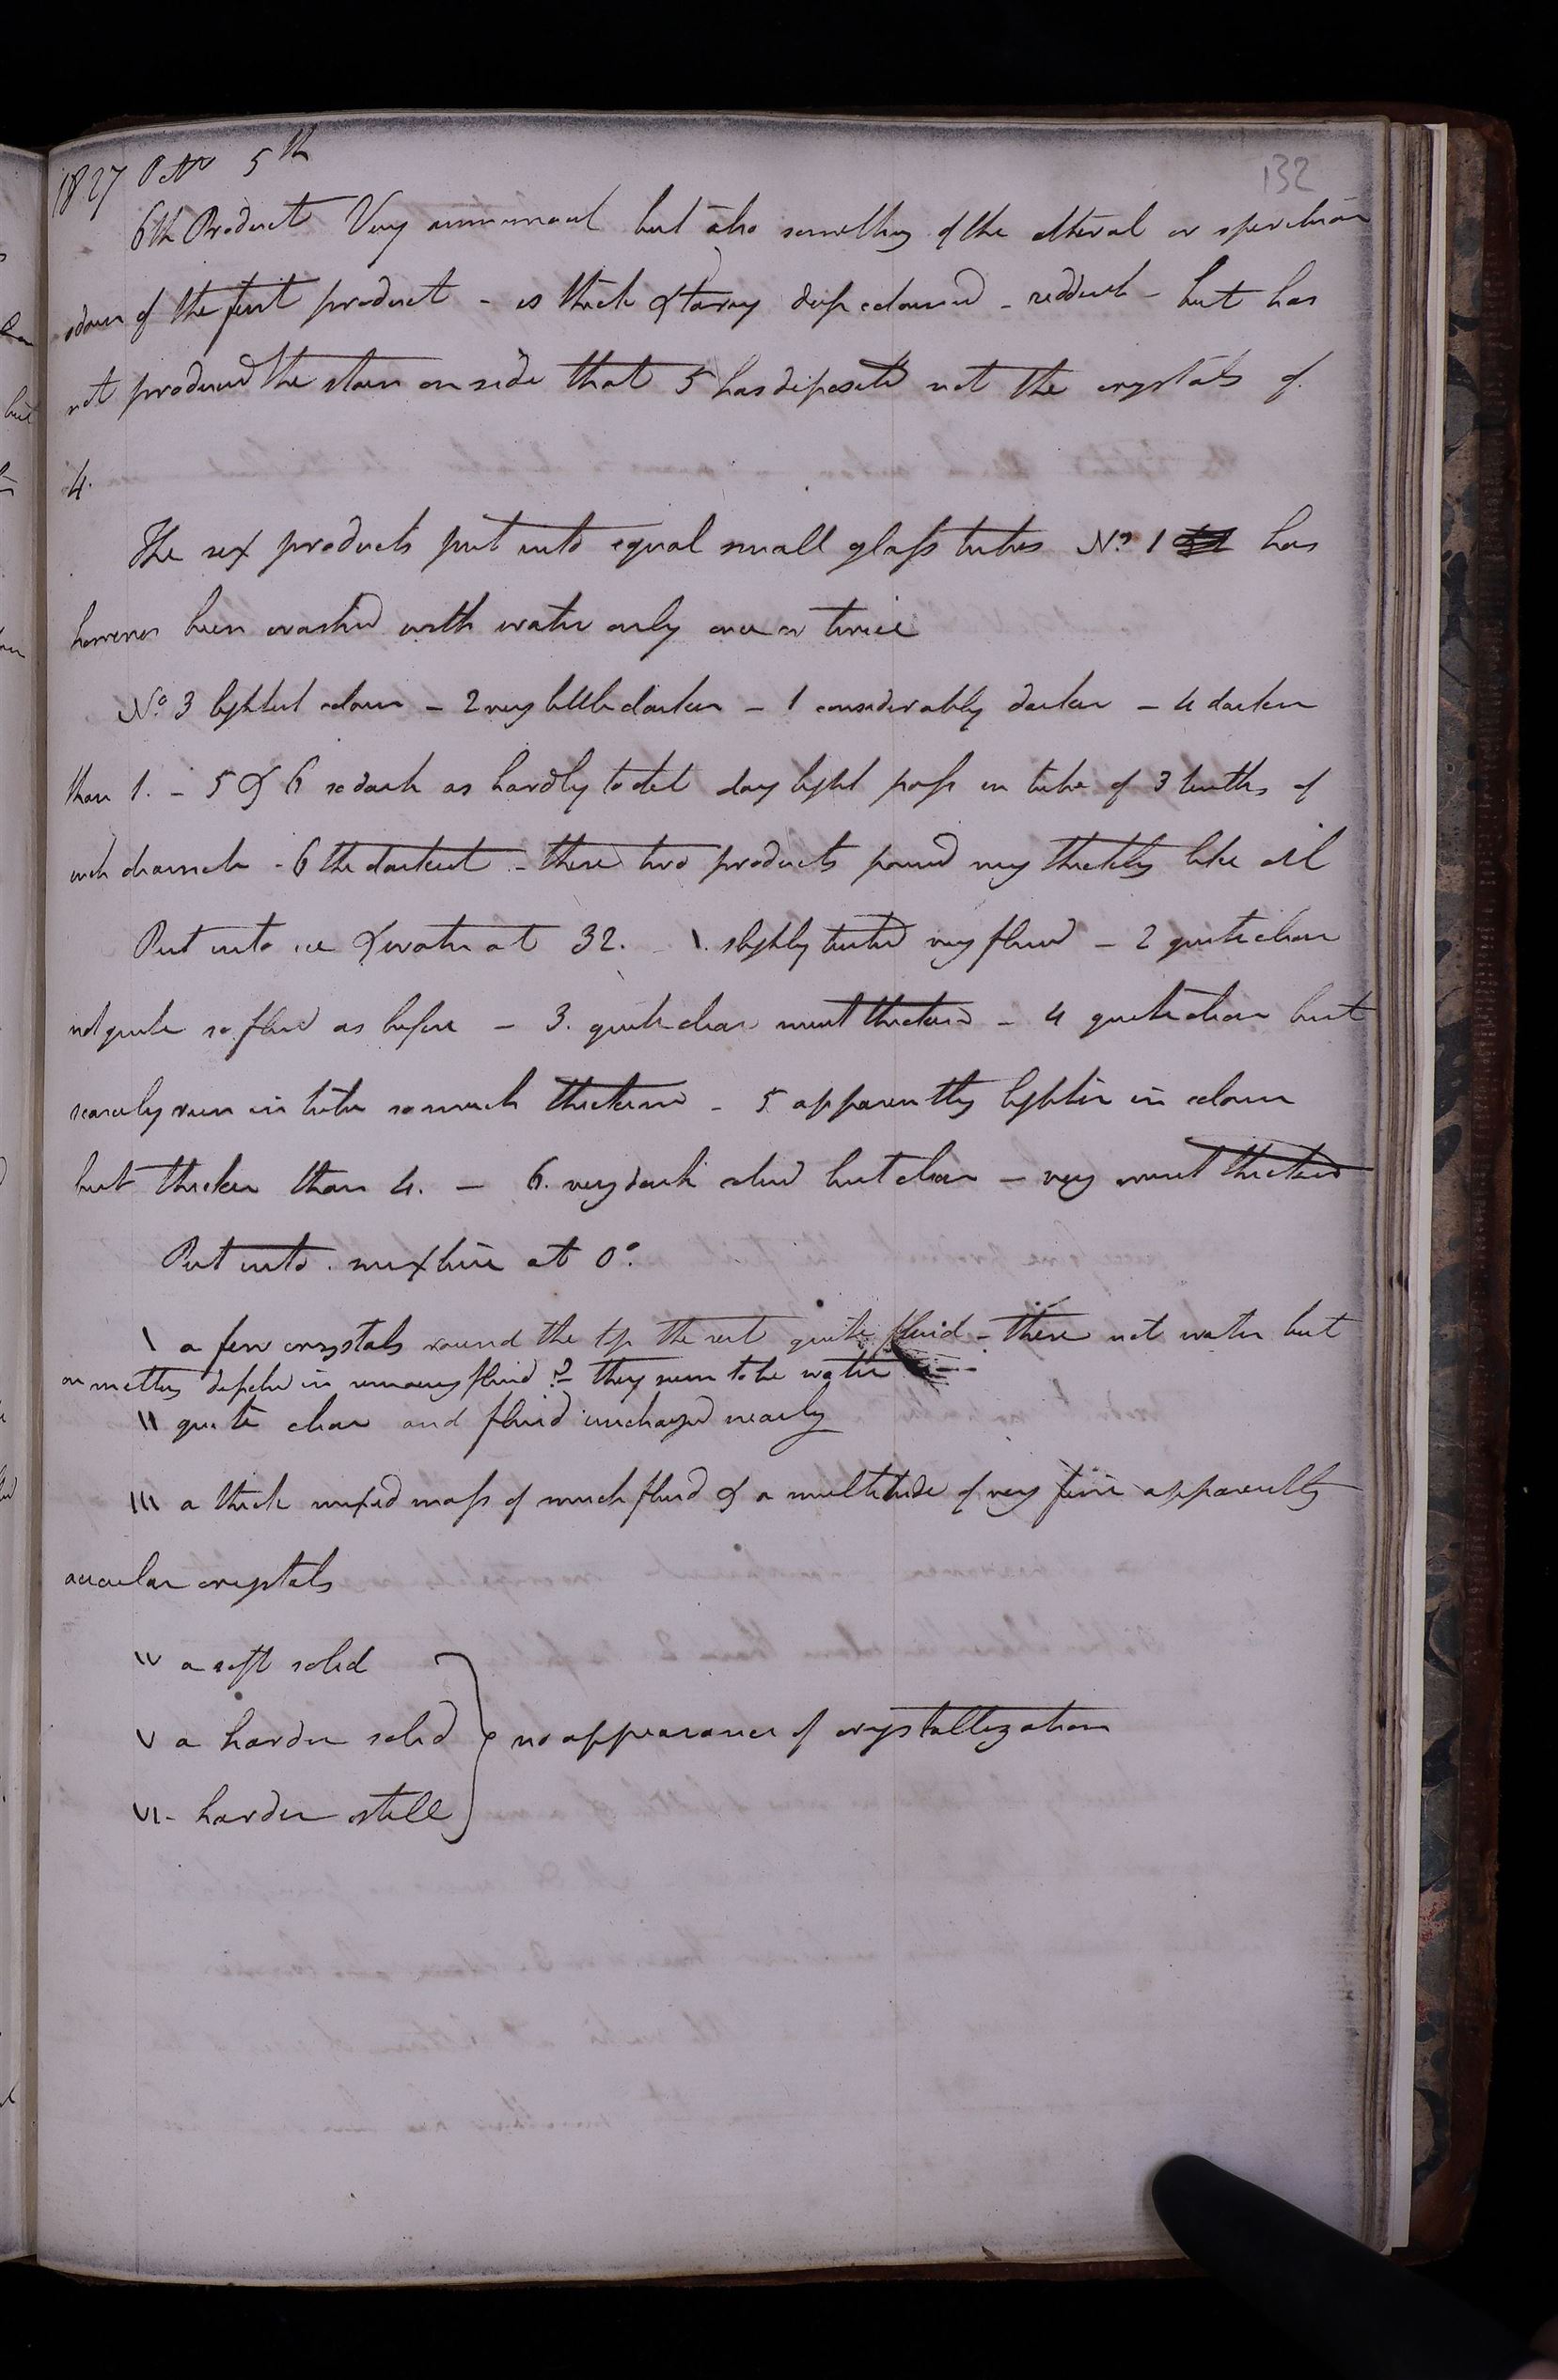 132
1827 Octr 5th
6th Product Very ammoniacal but also something of the etherial or
odour of the first product - is thick & tarry deep coloured - reddish - but has
not produced the stain on side that 5 has deposited not the crystals of
4.
The six products put into equal small glass tubes No. 1 has
however been washed with water only once or twice
No. 3 lightest colour - 2 very little darker - 1 considerably darker - 4 darker
than 1. - 5 & 6 so dark as hardly to let day light pass in tube of 3 tenths of
inch diameter - 6 the darkest - these two products poured very thickly like oil
Put into ice & water at 32. 1. slightly turbid very fluid - 2 quite clear
not quite so fluid as before - 3. quite clear much thickened - 4 quite clear but
scarcely runs in tube so much thickened - 5 apparently lighter in colour
but thicker than 4. - 6. very dark solid but clear - very much thickened
Put into mixture at 0°.
I a few crystals round the top the rest quite fluid - these not water but
on melting in fluid ? - they seem to be water
II quite clear and fluid unchanged nearly
III a thick mixed mass of much fluid & a multitude of very fine apparently
acicular crystals
IV a soft solid
V a harder solid } no appearance of crystallization
VI - harder still